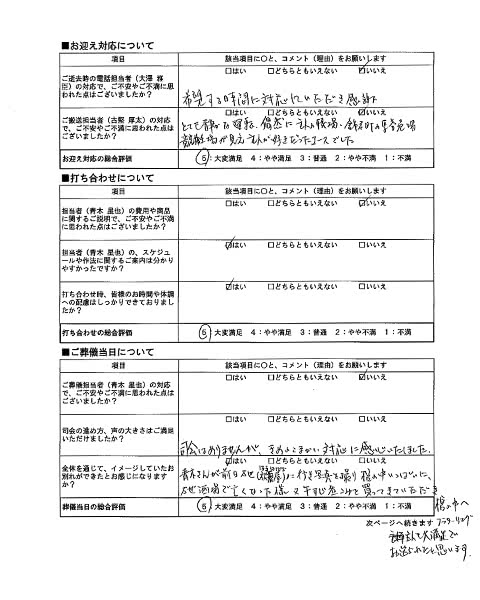 ■お迎え対応について
項目 該当項目に○と、コメント（理由）をお願いします
ご逝去時の電話担当者（大澤 務臣）の対応で、ご不安やご不満に思われた点はございましたか？
□はい □どちらともいえない ☑いいえ
希望する時間に対応していただき感謝
ご搬送担当者（古賀 厚太）の対応で、ご不安やご不満に思われた点はございましたか？
□はい □どちらともいえない □いいえ
とても静かな運転、偶然に
見え 好きだったコースでした
お迎え対応の総合評価 ⑤：大変満足 4：やや満足 3：普通 2：やや不満 1：不満
■打ち合わせについて
項目 該当項目に○と、コメント（理由）をお願いします
担当者（青木 星也）の費用や商品に関するご説明で、ご不安やご不満に思われた点はございましたか？
□はい □どちらともいえない ☑いいえ
担当者（青木 星也）の、スケジュールや作法に関するご案内は分かりやすかったですか？
☑はい □どちらともいえない □いいえ
打ち合わせ時、皆様のお時間や体調への配慮はしっかりできておりましたか？
☑はい □どちらともいえない □いいえ
打ち合わせの総合評価 ⑤：大変満足 4：やや満足 3：普通 2：やや不満 1：不満
■ご葬儀当日について
項目 該当項目に○と、コメント（理由）をお願いします
ご葬儀担当者（青木 星也）の対応で、ご不安やご不満に思われた点はございましたか？
□はい □どちらともいえない ☑いいえ
司会の進め方、声の大きさはご満足いただけましたか？
□はい □どちらともいえない □いいえ
司会はありませんが、きめこまかい対応に感心いたしました。
全体を通じて、イメージしていたお別れができたとお感じになりますか？
☑はい □どちらともいえない □いいえ
青木さんが前日 に行き写真を撮り 棺の中いっぱいに、
酒場で亡くなった 様 買ってきていただき
葬儀当日の総合評価 ⑤：大変満足 4：やや満足 3：普通 2：やや不満 1：不満
棺の中へ
次ページへ続きます
大満足で
お送られたと思います。